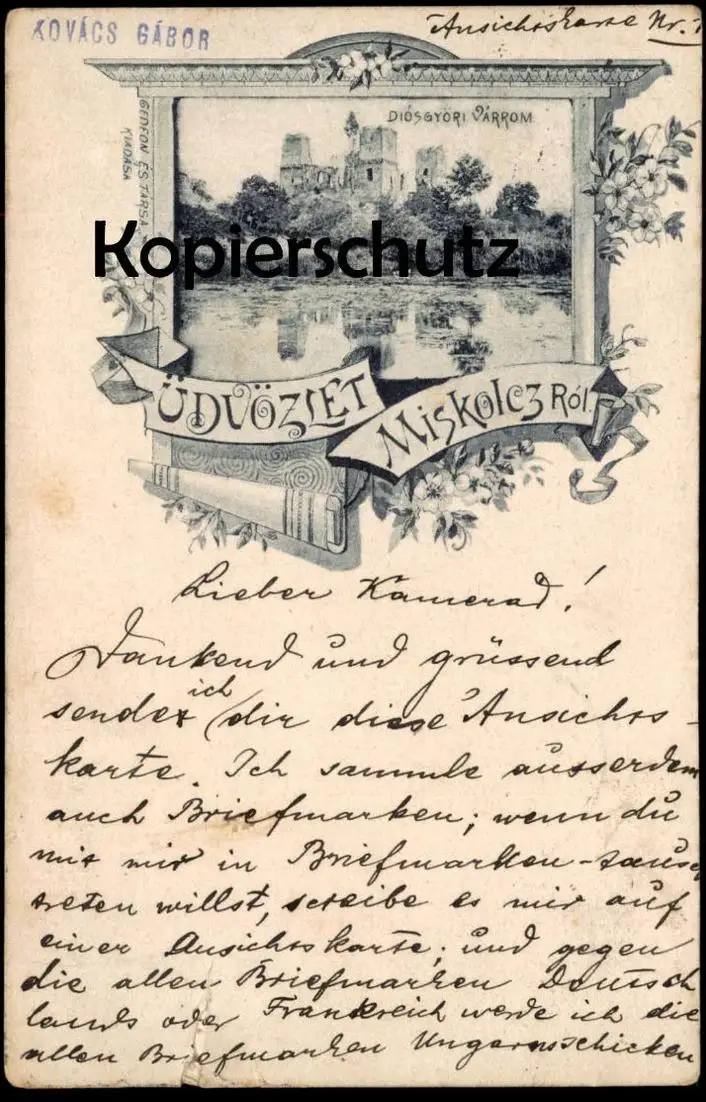 KOVÁCS GÁBOR
Ansichtskarte Nr.
DIÓSGYŐRI VÁRROM
GEDEON ÉS TÁRSA
KIADÁSA
Kopierschutz
ÜDVÖZLET
MISKOLCZRÓL.
Lieber Kamerad!
Dankend und grüssend
sende ich dir diese Ansichts-
karte. Ich sammle ausserdem
auch Briefmarken; wenn du
mit mir in Briefmarken-tausch
treten willst, screibe es mir auf
einer Ansichtskarte; und gegen
die allen Briefmarken Deutsch
lands oder Frankreich werde ich die
allen Briefmarken Ungarns schicken